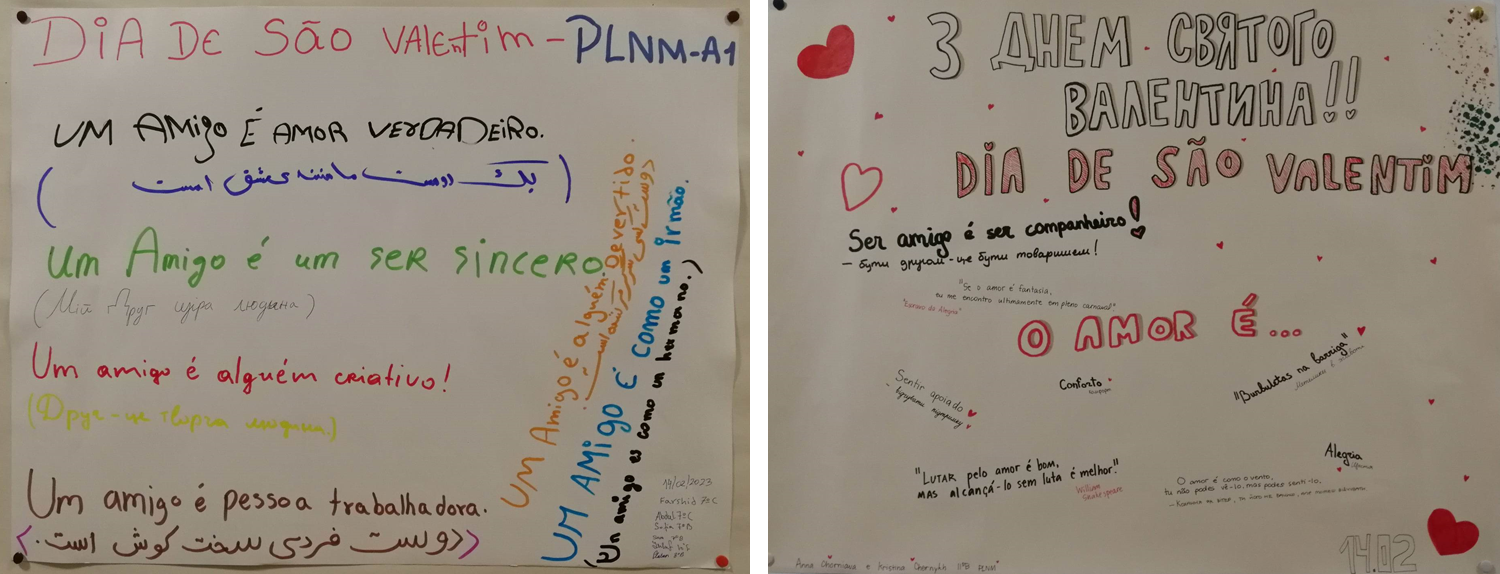 DiA DE São VALEntim - PLNM-A1
UM AMigo É AMOR VERDADEIRO.
(یک دوست مانند عشق است)
Um Amigo é um ser sincero
(Мій Друг щира людина)
Um amigo é alguém criativo!
(Друг - це творча людина.)
Um amigo é pessoa trabalhadora.
<<دوست فردی سخت کوش است.>>
UM Amigo é alguém Devertido.
UM AMiGO É COMO um irmão.
(Un amigo es como un hermano.)
14/02/2023
Farshid 7ºC
Abdul 7ºC
Sofia 7ºB
З ДНЕМ СВЯТОГО
ВАЛЕНТИНА!!
DIA DE SÃO VALENTIM
Ser amigo é ser companheiro!
- бути другом - це бути товаришем!
"Se o amor é fantasia,
eu me encontro ultimamente em pleno carnaval"
O AMOR É...
Sentir apoiado
- відчувати підтримку
Conforto
"Burbuletas na barriga"
"LUTAR pelo amor é bom,
mas alcançá-lo sem luta é melhor."
William
Shakespeare
Alegria
O amor é como o vento,
tu não podes vê-lo, mas podes senti-lo.
14.02
Anna Chorniava e Kristina Chornykh 11ºB PLNM